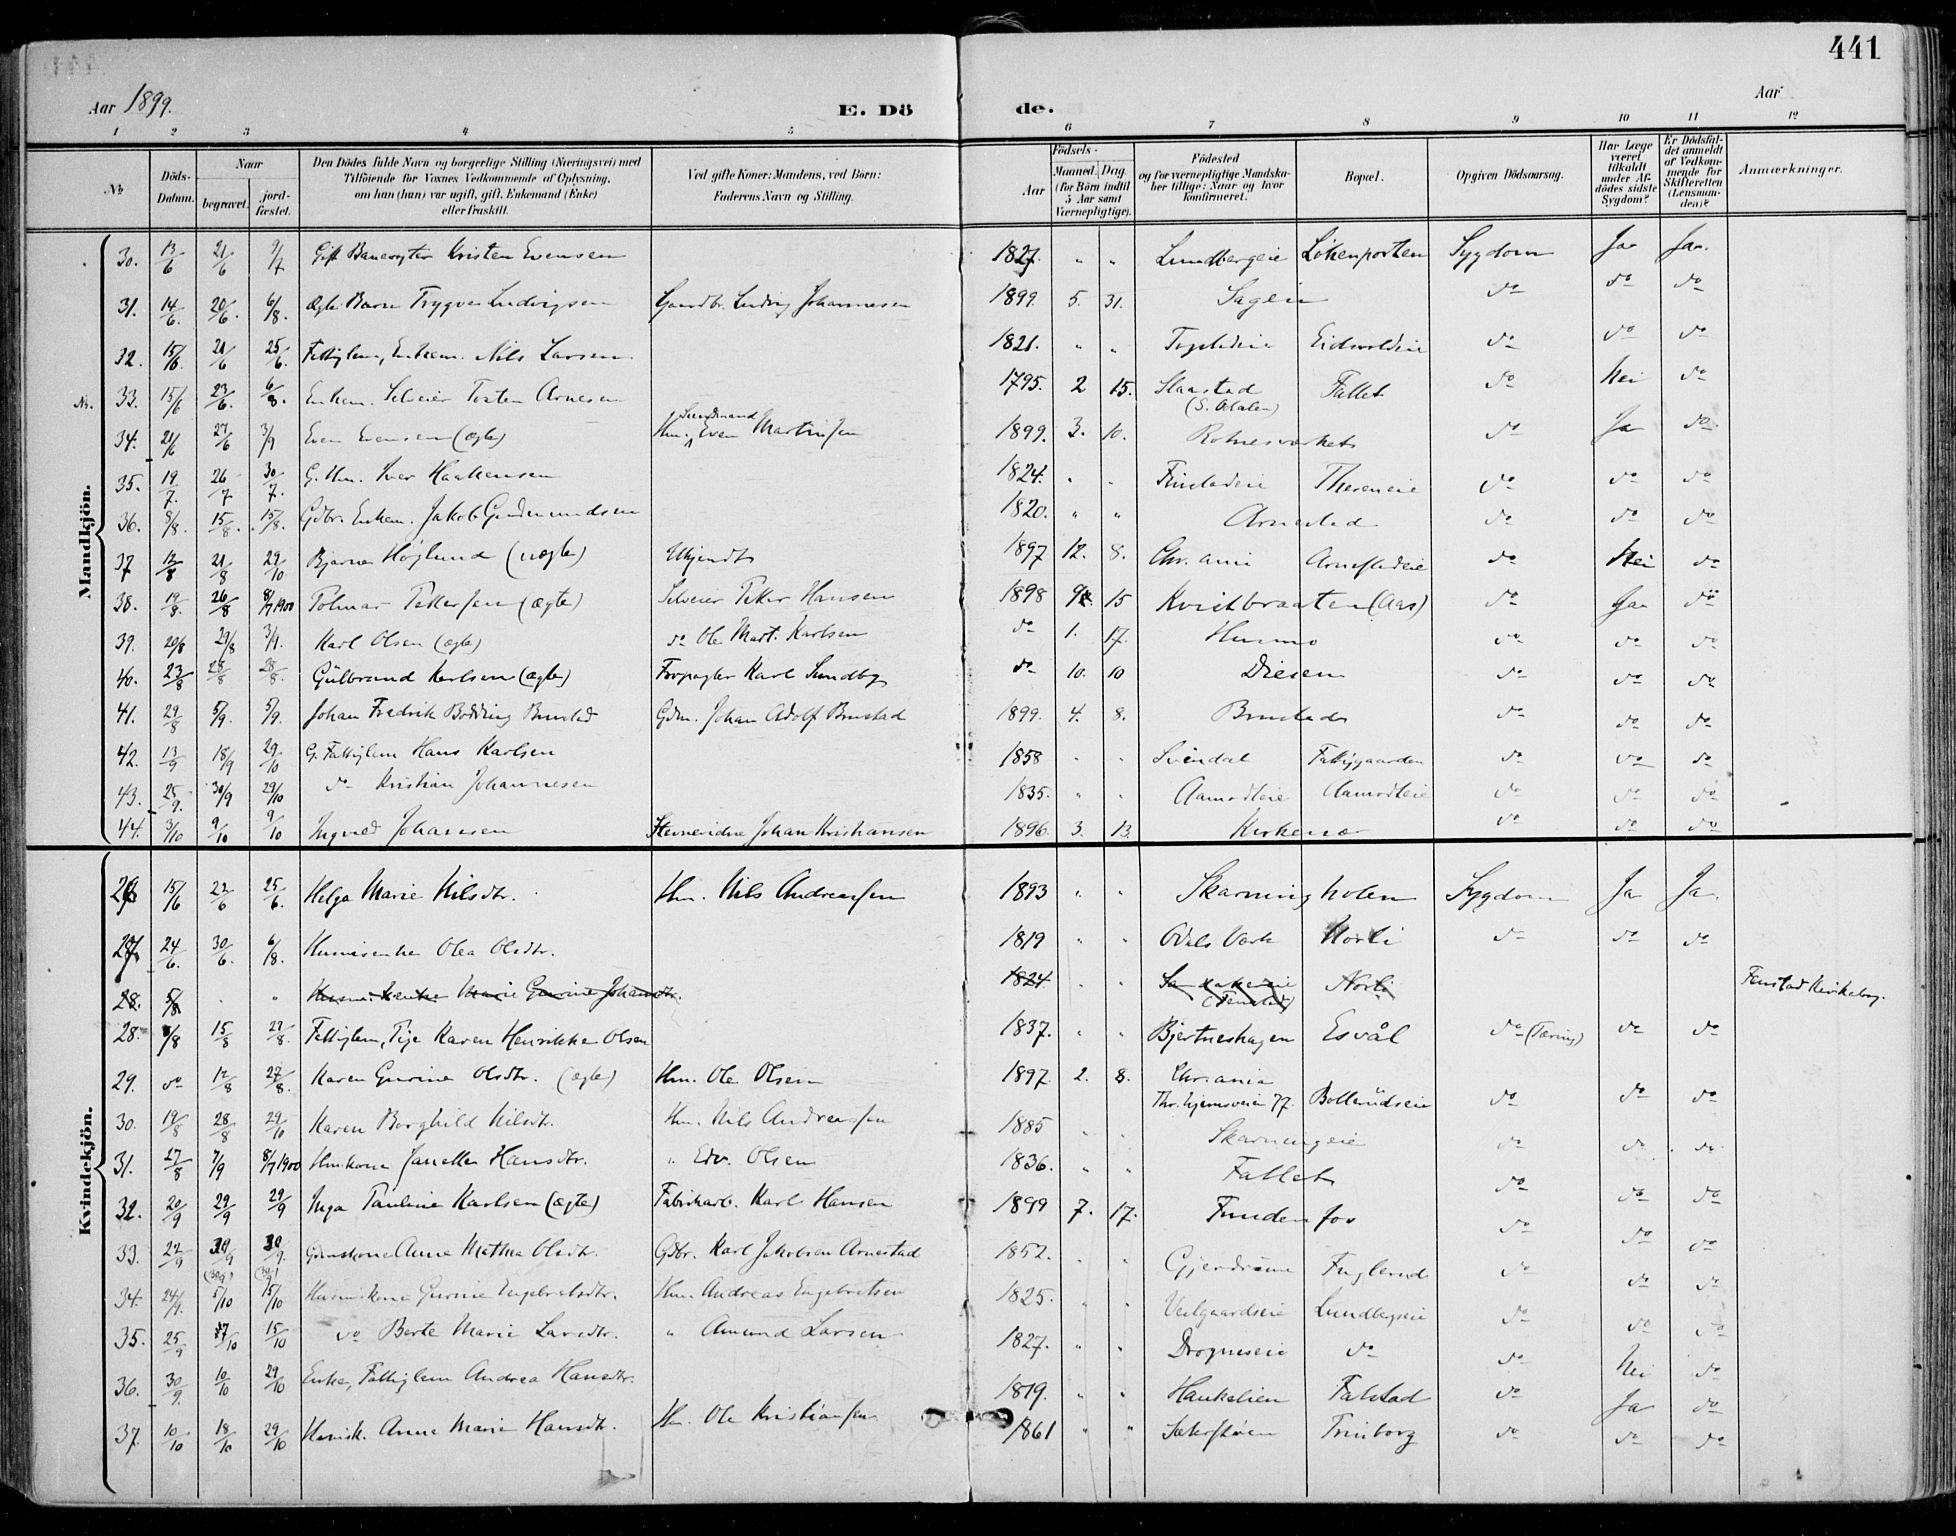 441
Aar 1899. E. Dö de. Aar
1 2 3 4 5 6 7 8 9 10 11 12
No Döds-Datum. Naar begravet. jord-fæstet. Den Dödes fulde Navn og borgerlige Stilling (Næringsvei) med Tilföiende for Voxnes Vedkommende af Oplysning, om han (hun) var ugift, gift, Enkemand (Enke) eller fraskilt. Ved gifte Koner: Mandens, ved Börn: Faderens Navn og Stilling. Födsels- Aar Maaned. Dag (for Börn indtil 5 Aar samt Værnepligtige). Födested og for værnepligtige Mandskaber tillige: Naar og hvor konfirmeret. Bopæl. Opgiven Dödsaarsag. Har Læge været tilkaldt under Afdödes sidste Sygdom? Er Dödsfaldet anmeldt af Vedkommende for Skifteretten (Lensmanden)? Anmærkninger.
Mandkjön.
30. 13/6 21/6 9/7 Gift Banevogter Kristen Evensen 1827. " " Lundbergeie Lökenporten Sygdom Ja Ja.
31. 14/6. 20/6. 6/8. Ægte Barn Trygve Ludvigsen Gaardbr. Ludvig Johannesen 1899. 5. 31. Sageie do do do
32. 15/6. 21/6 25/6. Fattiglem, Enkem. Nils Larsen 1821. " " Eidsvoldeie do do do
33. 15/6 23/6. 6/8. Enkem. Selveier Torsten Arnesen 1795. 2 15. Slaastad (S. Odalen) Fallet do Nei do
34. 21/6 27/6 3/9 Even Evensen (ægte) Hm. Sundmand Even Martinsen 1899. 3. 10. Rotnesvarket do Ja do
35. 19/7. 26/7 30/7. G. Hm. Iver Haakensen 1824. " " Finstadeie Thereneie do do do
36. 8/8. 15/8. 15/8. Gdbr. Enkem. Jakob Gudmundsen 1820. " " Arnestad do do do
37 12/8 21/8 29/10 Bjarne Höglund (uægte) Ukjendt 1897 12. 8. Chr.ania Arnestadeie do Nei do
38. 19/8. 26/8 8/7 1900 Tolmar Pettersen (ægte) Selveier Petter Hansen 1898 9 15 Kvistbraaten (Aas) do Ja do
39. 20/8 29/8 3/9. Karl Olsen (ægte) do Ole Mart. Karlsen do 1. 17. Hummo do do do
40. 23/8 28/8 28/8. Gulbrand Karlsen (ægte) Forpagter Karl Sundby do 10. 10 Diesen do do do
41. 29/8 5/9. 5/9. Johan Fredrik Bödding Brustad Gdm. Johan Adolf Brustad 1899. 4. 8. Brustad do do do
42. 13/9 18/9 29/10 G. Fattiglem Hans Karlsen 1858 " " Svendal Fattiggaarden do do do
43. 25/9. 30/9 29/10 do Kristian Johannesen 1835. " " Aamodteie Aamodteie do do do
44. 3/10 9/10 9/10 Ingvald Johansen Johan Kristiansen 1896. 3. 13. Kirkemo do do do
Kvindekjön.
26. 15/6 22/6 25/6. Helga Marie Nilsdtr. Hm. Nils Andreassen 1893 " " Skarningholen Sygdom Ja Ja.
27. 24/6. 30/6. 6/8. Husmsenke Olea Olsdtr. 1819 " " Odals Værk Norli do do do
28. 5/8 " " Husm. enke Marie Gurine Johansdtr. 1824 " " (Fenstad) Norli Fenstad Kirkebog.
28. 8/8 15/8 27/8. Fattiglem, Pige Karen Henrikke Olsen 1837. " " Bjertneshagen Esvål do (Tæring) do do
29. do 12/8 27/8. Karen Gurine Olsdtr. (ægte) Hm. Ole Olsen 1897. 2. 8. Chr.ania Thr.hjemsveien 77. Bollerüdseie do do do
30. 19/8 28/8 29/10 Karen Borghild Nilsdtr. Hm. Nils Andreassen 1885 " " Skarningeie do do do
31. 27/8 7/9 8/7 1900 Hmkone Janette Hansdtr. " Edv. Olsen 1836. " " Fallet do do do
32. 20/9 29/9 29/9 Inga Pauline Karlsen (ægte) Fabrikarb. Karl Hansen 1899 7. 17. Fundenfos do do do
33. 22/9 30/9 (30/9) 30/9. (30/9) Gdmskone Anne Mathea Olsdtr. Gdbr. Karl Jakobsen Arnestad 1852. " " Gjerdrum Fuglerud do do do
34. 24/9. 5/10 15/10 Husmskone Gurine Engebretsdtr. Hm. Andreas Engebretsen 1825. " " Veilgaardseie Lundbergseie do do do
35. 25/9 7/10 15/10 do Berte Marie Larsdtr. " Amund Larsen 1827. " " Drogneseie do do Nei do
36. 30/9. 10/10 29/10 Enke, Fattiglem Andrea Hansdtr. 1819. " " Haukelien Falstad do Ja do
37. 10/10 18/10 29/10 Husmk. Anne Marie Hansdtr. Hm. Ole Kristiansen 1861 " " Trinborg do do do